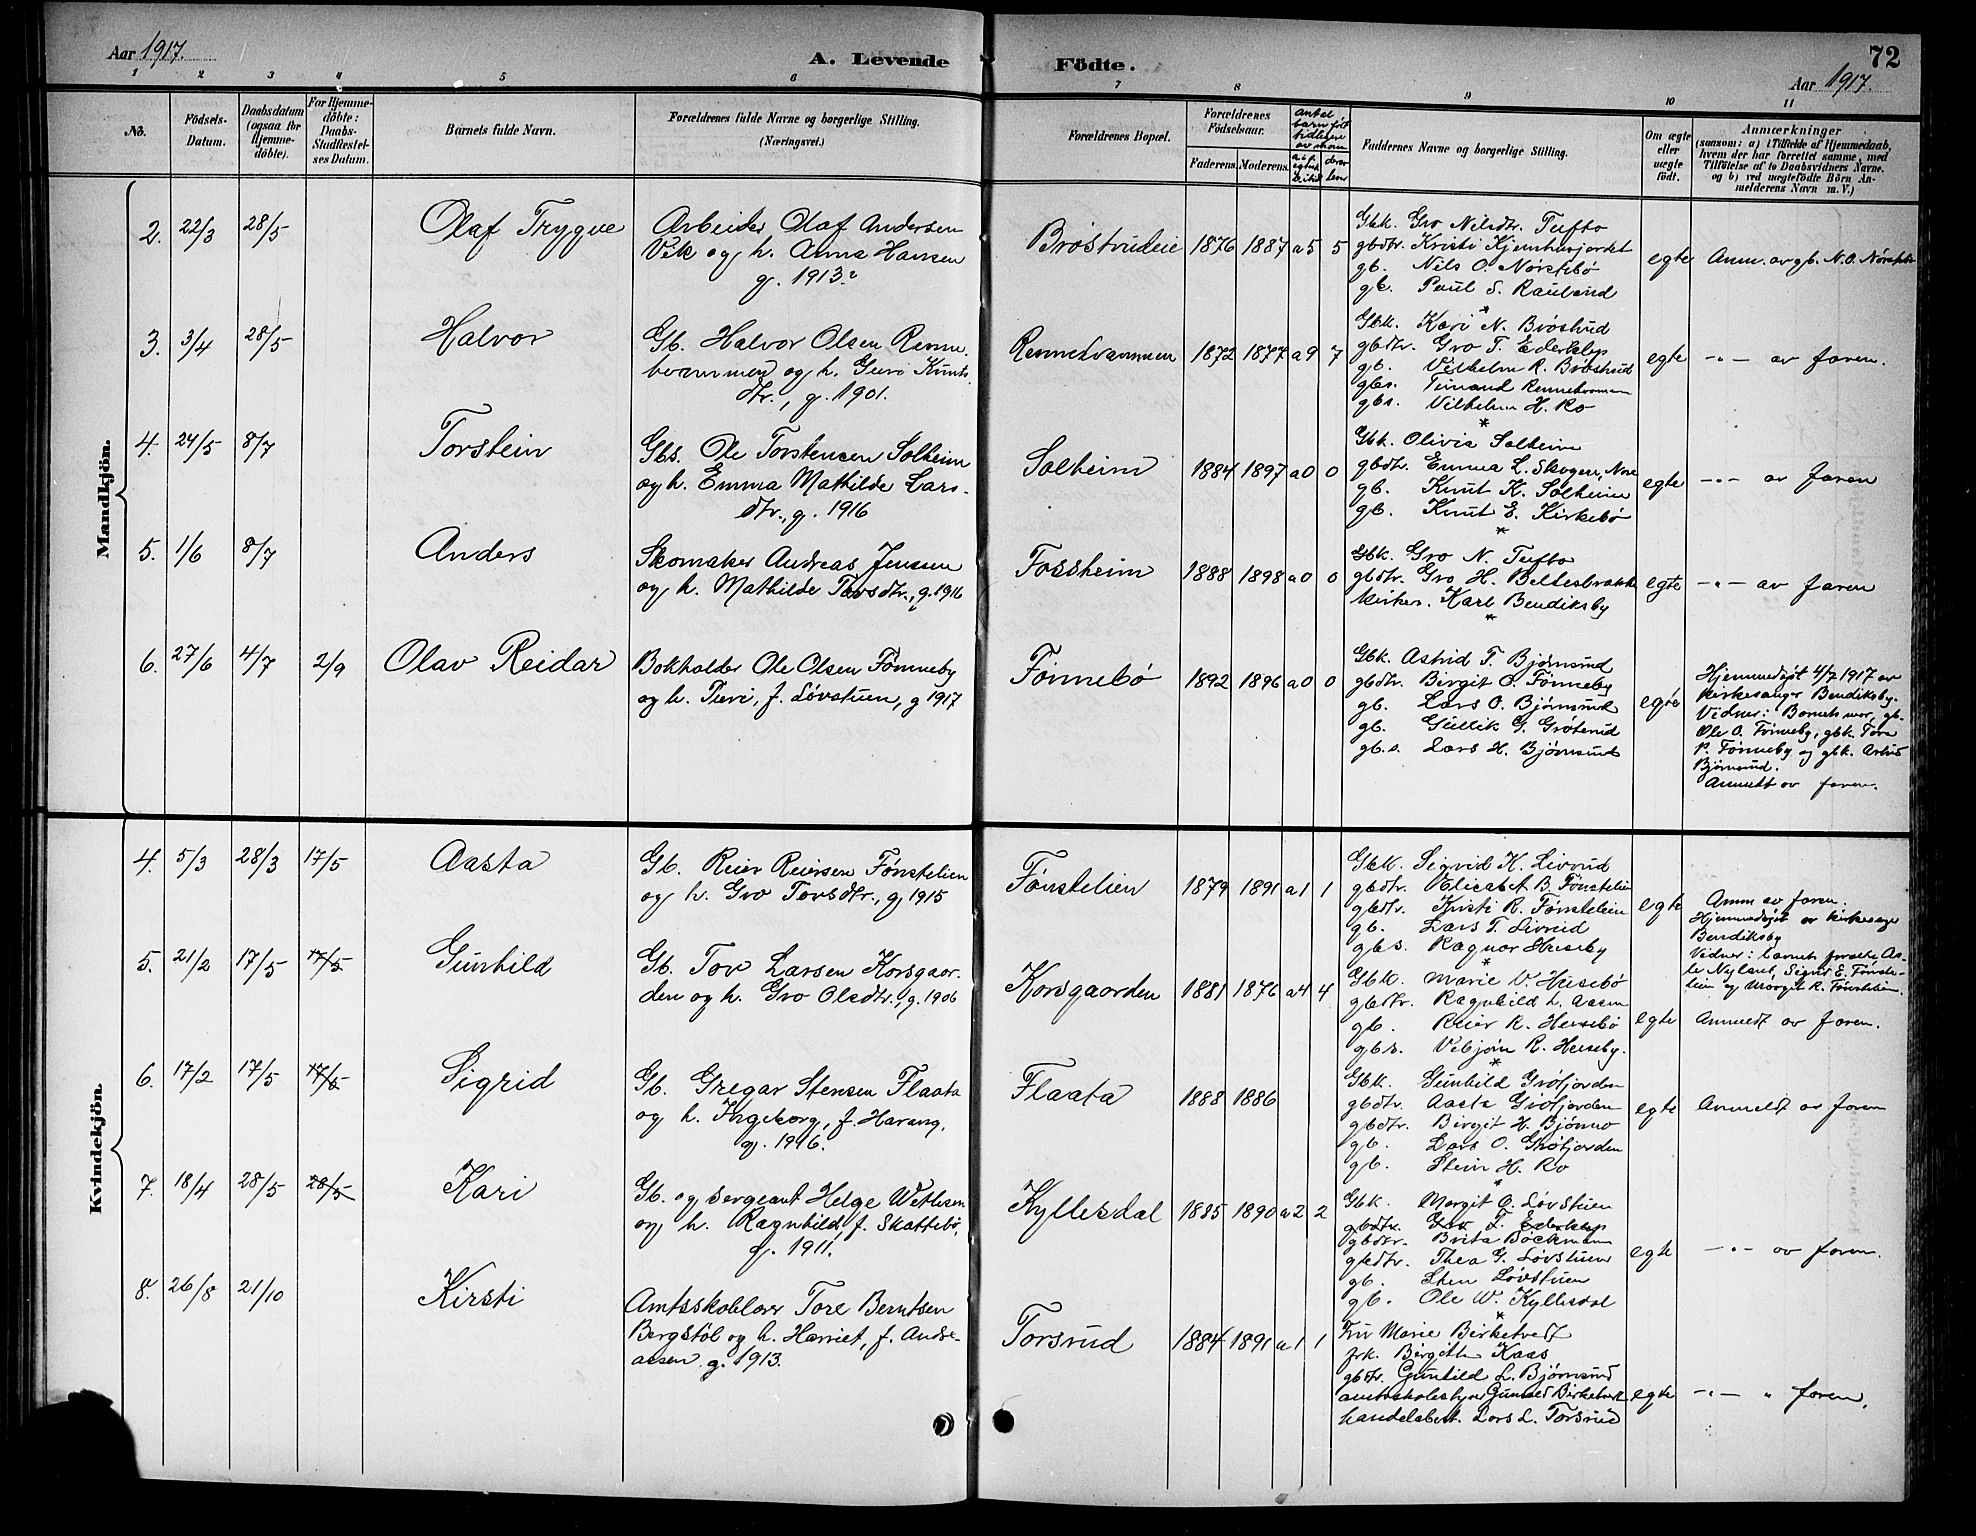 Aar 1917.
A. Levende
Födte.
72
Aar 1917.
1 2 3 4 5 6 7 8 9 10 11
No.
Födsels-
Datum.
Daabsdatum
(ogsaa for
Hjemme-
döbte).
For Hjemme-
döbte:
Daabs-
Stadfæstel-
ses Datum.
Barnets fulde Navn.
Forældrenes fulde Navne og borgerlige Stilling.
(Næringsvei.)
Forældrenes Bopæl.
Forældrenes
Födselsaar.
Faderens. Moderens.
Antal
barn föt
tidligere
av moren
Faddernes Navne og borgerlige Stilling.
Om ægte
eller
uægte
födt.
Anmærkninger
(saasom: a) i Tilfælde af Hjemmedaab,
hvem der har forrettet samme, med
Tilföielse af to Daabsvidners Navne,
og b) ved uægtefödte Börn An-
melderens Navn m. V.)
Mandkjön.
2. 22/3 28/5
Olaf Trygve
Arbeider Olaf Andersen
Vik og h. Anna Hansen
g. 1913.
Brøstrudeie 1876 1887 a5 5
Gbk. Gro Nilsdtr. Tufto
gbdtr. Kristi
gb. Nils O. Nørstebø
gb. Paul S. Rauland
egte
Anm. av gb. N. O. Nørstebø
3. 3/4 28/5
Halvor
Gb. Halvor Olsen Renne-
tvammen og h. Guro Knuts-
dtr., g. 1901.
Rennetvammen 1872 1877 a9 7
Gbk. Kari N. Brøstrud
gbdtr. Gro T. Ederklep
gb. Vilhelm R. Brøstrud
gbs. Rennetvammen
gbs. Vilhelm H. Ro
egte
-"- av faren.
4. 24/5 8/7
Torstein
Gbs. Ole Torstensen Solheim
og h. Emma Mathilde Lars-
dtr., g. 1916
Solheim 1884 1897 a0 0
Gbk. Olivia Solheim
gbdtr. Emma L. Skogen, Nore
gb. Knut K. Solheim
gb. Knut E. Kirkebø
egte
-"- av faren
5. 1/6 8/7
Anders
Skomaker Andreas Jensen
og h. Mathilde Torsdtr., g. 1916
Fossheim 1888 1898 a0 0
Gbk. Gro N. Tufto
gbdtr. Gro H. Beltesbrække
kirkes. Karl Bendiksby
egte
-"- av faren
6. 27/6 4/7 2/9
Olav Reidar
Bokholder Ole Olsen Fønneby
og h. Turi, f. Løvstuen, g 1917
Fønnebø 1892 1896 a0 0
Gbk. Astrid T. Bjørnsrud
gbdtr. Birgit O. Fønneby
gb. Lars O. Bjørnsrud
gb. Gullik G. Grøterud
gb.s. Lars H. Bjørnsrud
egte
Hjemmedøpt 4/7 1917 av
kirkesanger Bendiksby.
Vidner: Barnets mor, gb.
Ole O. Fønneby, gbk. Tora
P. Fønneby og gbk. Astrid
Bjørnsrud.
Anmeldt av faren.
Kvindekjön.
4. 5/3 28/3 17/5
Aasta
Gb. Reier Reiersen Fønstelien
og h. Gro Torsdtr., g. 1915
Fønstelien 1879 1891 a1 1
Gbk. Sigrid K. Livrud
gbdtr. Elisabet B. Fønstelien
gbdtr. Kristi R. Fønstelien
gb. Lars T. Livrud
gbs. Ragnar Huseby
egte
Anm av faren.
Hjemmedøpt av kirkesanger
Bendiksby
Vidner: barnets forældre,
Nyland, Sigrid E. Fønste-
lien og Margit R. Fønstelien.
5. 21/2 17/5 17/5
Gunhild
Gb. Tov Larsen Korsgaar-
den og h. Gro Olsdtr., g. 1906
Korsgaarden 1881 1876 a4 4
Gbk. Marie V. Husebø
gbdtr. Ragnhild L. Aasen
gb. Reier R. Husebø
gbs. Vebjørn R. Huseby.
egte
Anmeldt av faren.
6. 17/2 17/5 17/5
Sigrid
Gb. Gregar Stensen Flaata
og h. Ingeborg, f. Harang,
g. 1916.
Flaata 1888 1886
Gbk. Gunhild Grøfjorden
gbdtr. Aasta Grøfjorden
gbdtr. Birgit H. Bjønno
gb. Lars O. Grøfjorden
gb. Stein H. Ro
egte
Anmeldt av faren
7. 18/4 28/5 28/5
Kari
Gb. og sergeant Helge Wetlesen
og h. Ragnhild, f. Skattebø,
g. 1911.
Kyllesdal 1885 1890 a2 2
Gbk. Margit O. Løvstuen
gbdtr. Gro T. Ederklep
gbdtr. Brita Böckmann
gbdtr. Thea G. Løvstuen
gb. Sten Løvstuen
gb. Ole W. Kyllesdal
egte
-"- av faren.
8. 26/8 21/10
Kirsti
Amtsskolelærer Tore Berntsen
Bergstøl og h. Harriet, f. Andre-
assen g. 1913.
Torsrud 1884 1891 a1 1
Fru Marie Birketvedt
frk. Birgitte Kaas
gbdtr. Gunhild L. Bjørnsrud
amtsskolestyrer Birketvedt
handelsbet. Lars L. Torsrud
egte
-"- " faren.